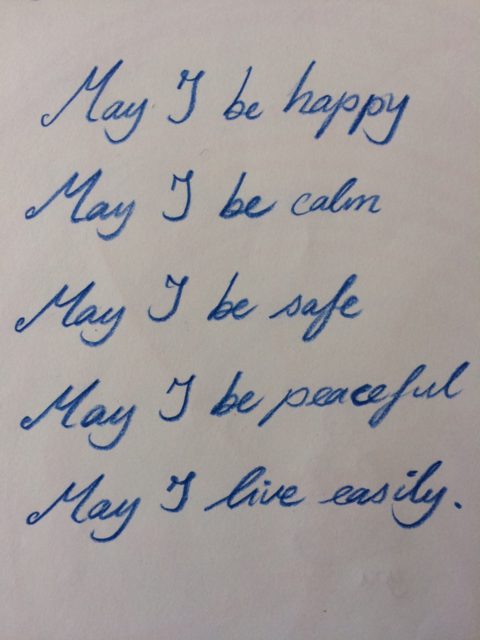 May I be happy
May I be calm
May I be safe
May I be peaceful
May I live easily.